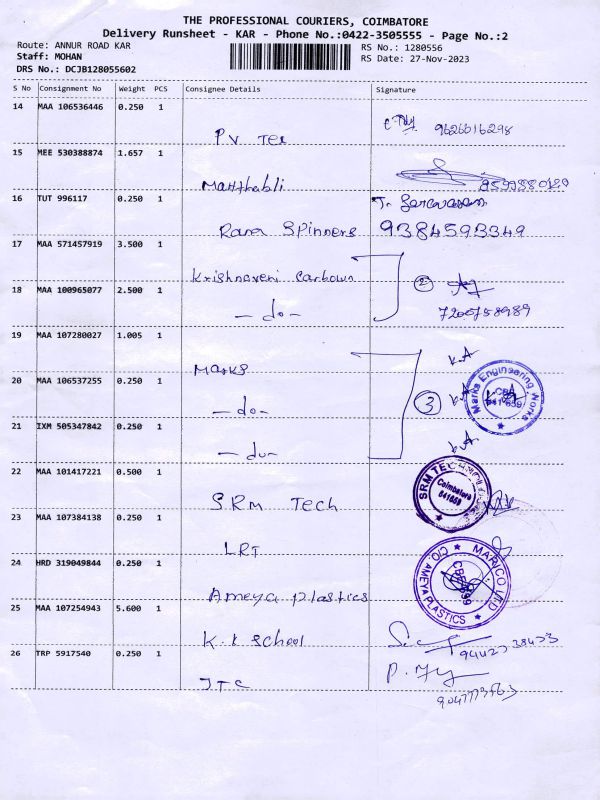 THE PROFESSIONAL COURIERS, COIMBATORE
Delivery Runsheet - KAR - Phone No.:0422-3505555 - Page No.:2
Route: ANNUR ROAD KAR
RS No.: 1280556
Staff: MOHAN
RS Date: 27-Nov-2023
DRS No.: DCJB128055602
S No Consignment No Weight PCS Consignee Details Signature
14 MAA 106536446 0.250 1
9626616298
P.V Tex
15 MEE 530388874 1.657 1
16 TUT 996117 0.250 1
Rana Spinners 9384593349
17 MAA 571457919 3.500 1
Krishnaveni Carbown
2
18 MAA 100965077 2.500 1
- do -
7200758989
19 MAA 107280027 1.005 1
Marks
K.A
20 MAA 106537255 0.250 1
- do -
3
K.A
Marks Engineering Works
CBE
641 659
21 IXM 505347842 0.250 1
- do -
K.A
22 MAA 101417221 0.500 1
SRM Tech
SRM TEC
Coimbatore
641659
23 MAA 107384138 0.250 1
LRT
24 HRD 319049844 0.250 1
Ameya plastics
MARICO LTD
C/O. AMEYA PLASTICS
25 MAA 107254943 5.600 1
K.K School
26 TRP 5917540 0.250 1
ITC